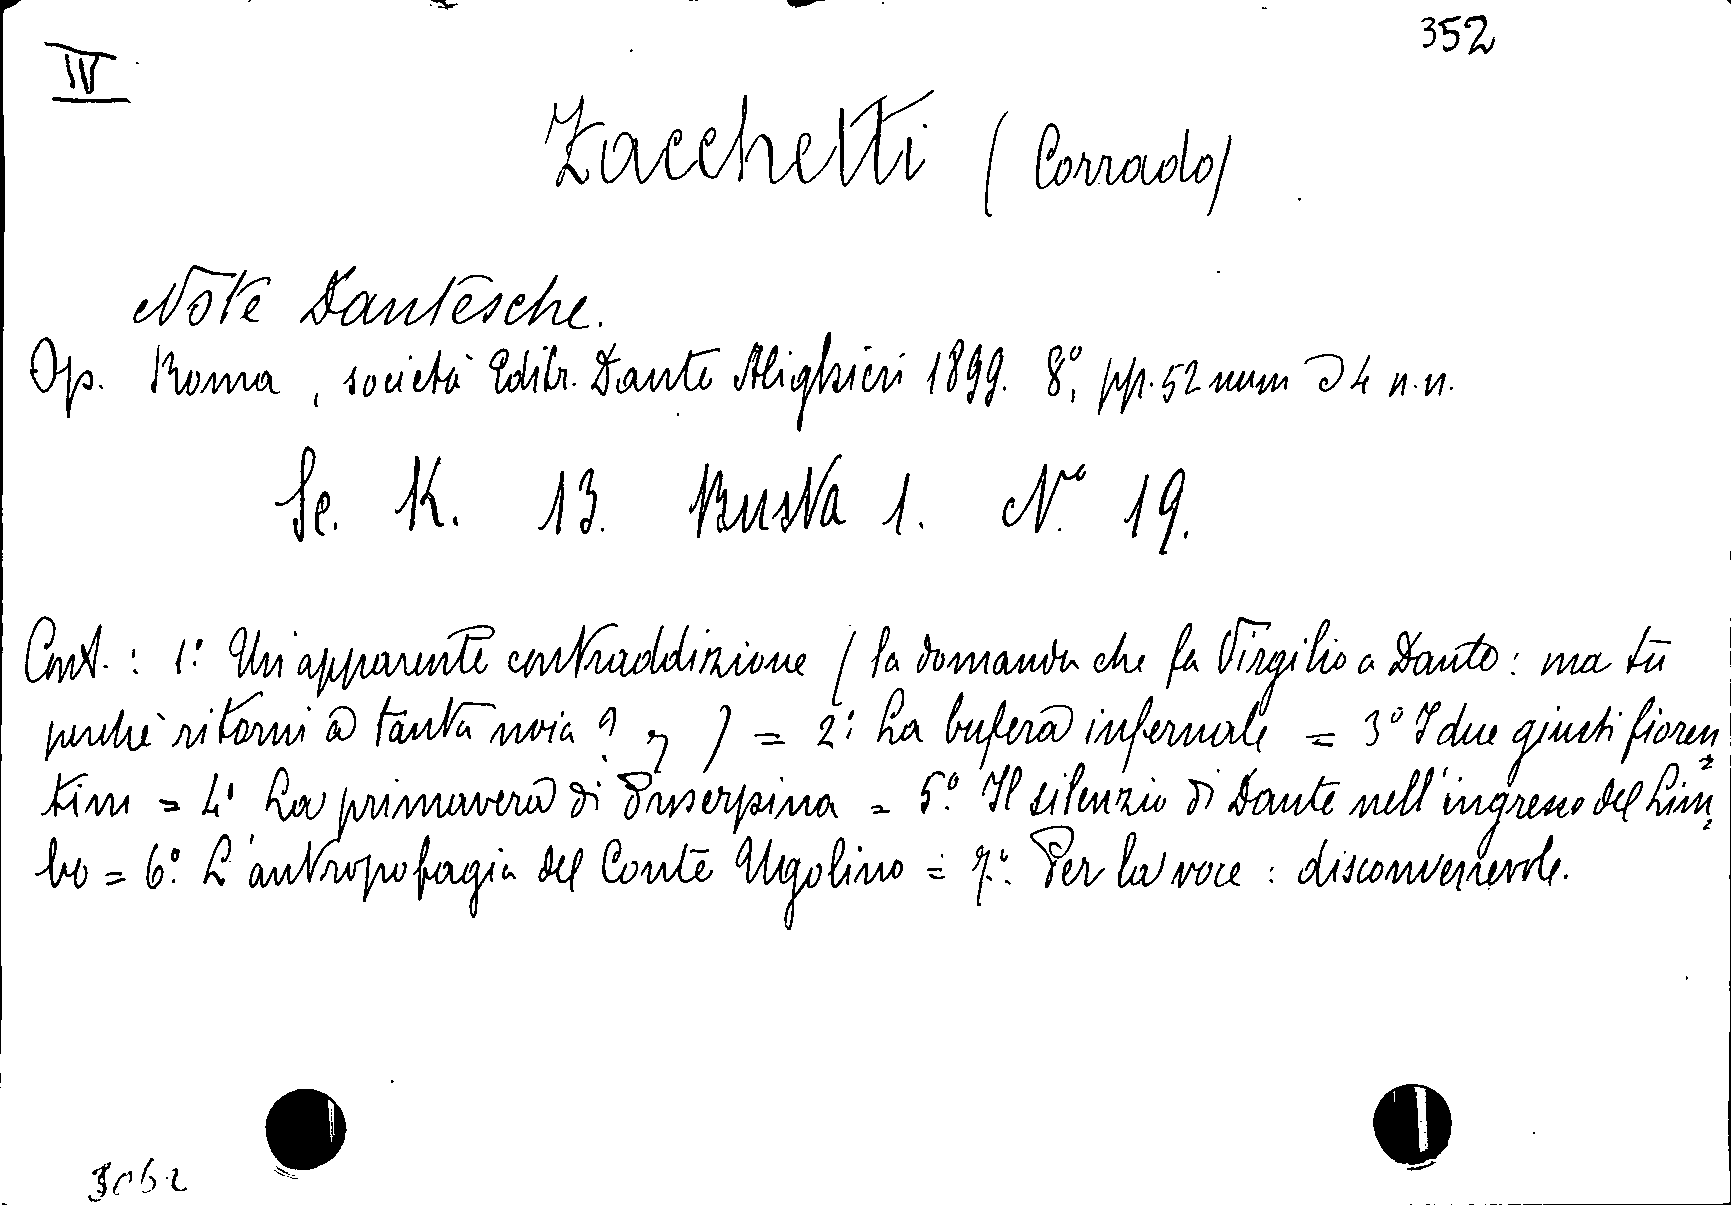 IV
352
Zacchetti (Corrado)
Note Dantesche.
Op. Roma, società Editr. Dante Alighieri 1899. 8°, pp. 52 num e 4 n.n.
Se. K. 13. Busta 1. N.° 19.
Cont.: 1° Un'apparente contraddizione (la domanda che fa Virgilio a Dante: ma tu
perchè ritorni a tanta noia? ,,) = 2° La bufera infernale = 3° I due giusti fioren=
tini = 4° La primavera di Proserpina = 5° Il silenzio di Dante nell'ingresso del Lim=
bo = 6° L'antropofagia del Conte Ugolino = 7° Per la voce: disconvenevole.
3062